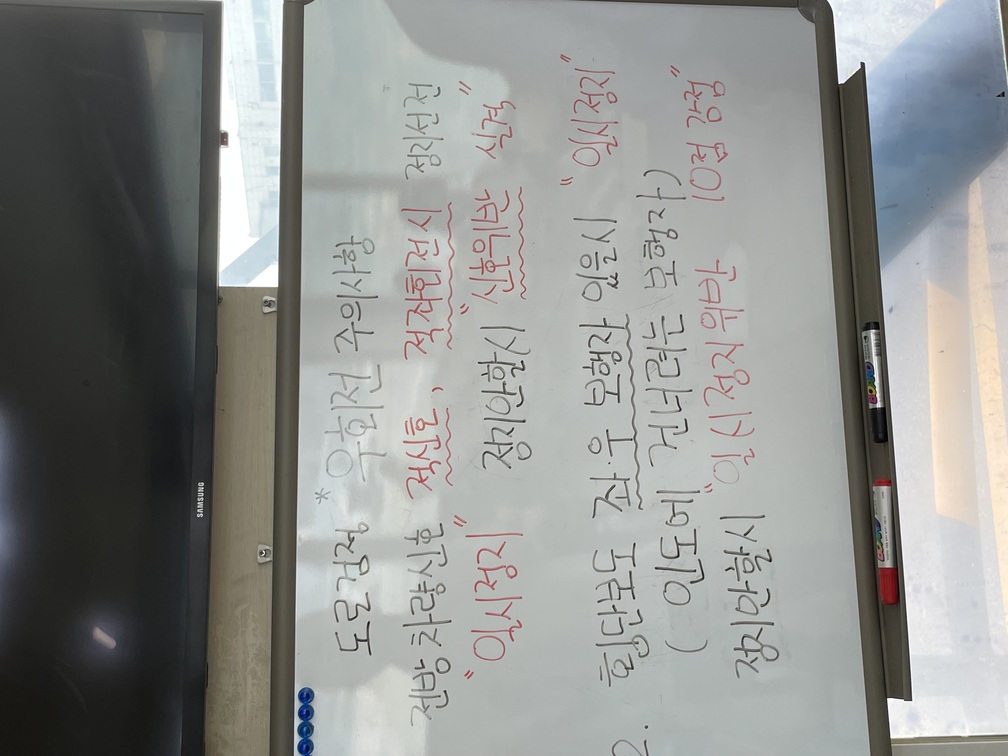 SAMSUNG
도로검정 *우회전 주의사항
전방 차량신호 적신호, 적좌회전시 정지선전
"일시정지" 정지안할시 "신호위반 실격"
2. 횡단보도 좌·우 보행자 있을시 "일시정지"
( 인도에 건너려는 보행자)
정지안할시 "일시정지위반 10점 강점"
BOARD BOARD